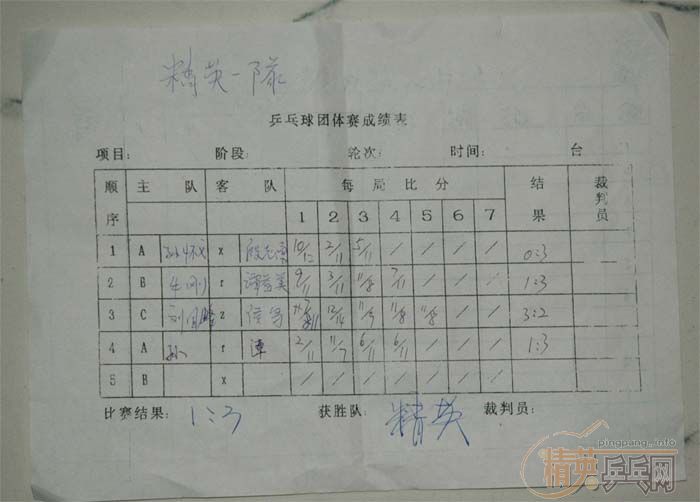 精英一隊
乒乓球团体赛成绩表
项目: 阶段: 轮次: 时间: 台
顺序 主队 客队 每局比分 结果 裁判员
1 2 3 4 5 6 7
1 A x 10/12 2/11 5/11 / / / / 0:3
2 B r 9/11 3/11 11/8 7/11 / / / 1:3
3 C z 12/14 11/9 11/8 11/8 / / 3:2
4 A 孙 r 谭 2/11 11/7 6/11 6/11 / / / 1:3
5 B x / / / / / / /
比赛结果: 1:3 获胜队: 精英 裁判员:
pingpang.info
精英乒乓网